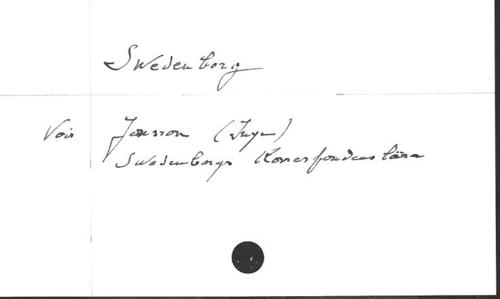 Swedenborg
Voir Jonsson (Inge)
Swedenborgs Korrespondenslära